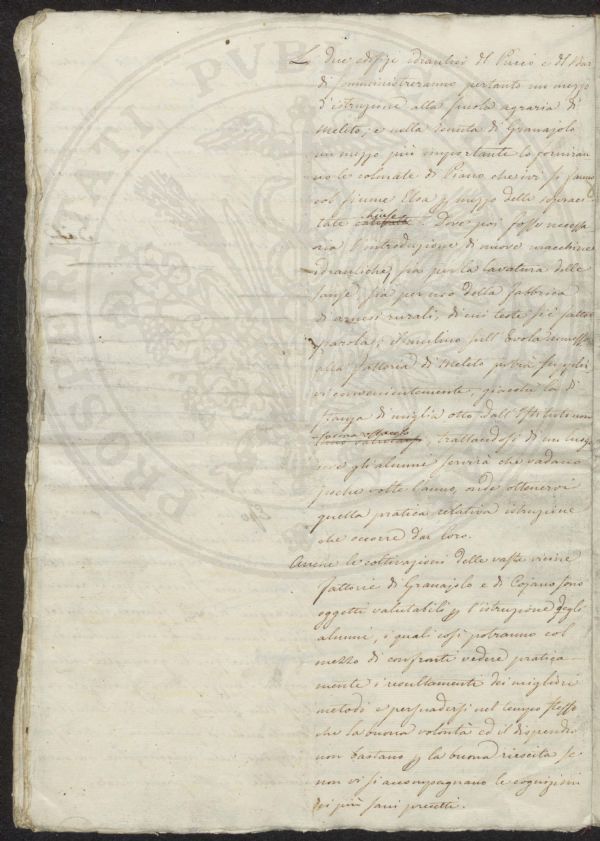 Le due edifizj idraulici del Pucio e di Bar
di somministreranno pertanto un mezzo
d'istruzione alla scuola agraria di
Meleto, e nella tenuta di Granajolo
un mezzo più importante lo forniran
no le colmate di Piano che ivi si fanno
col fiume Elsa p mezzo delle sopraci
tate chiuse. Dove poi fosse necessa
ria l'introduzione di nuove macchine
idrauliche, sia per la lavatura delle
lane, sia per uso della fabbrica
di arnesi rurali, di cui testè si è fatto
parola, il mulino sull'Evola annesso
alla fattoria di Meleto potrà supplir
vi convenientemente, giacchè la di
stanza di miglia otto dall'Istituto non
forma ostacolo, trattandosi di un luogo
ove gli alunni servirà che vadano
poche volte l'anno, onde ottenervi
quella pratica relativa istruzione
che occorre dar loro.
Anche le coltivazioni delle vaste vicine
fattorie di Granajolo e di Cojano sono
oggetti valutabili p l'istruzione degli
alunni, i quali così potranno col
mezzo di confronti vedere pratica
mente i resultamenti dei migliori
metodi e persuadersi nel tempo stesso
che la buona volontà ed il dispendio
non bastano p la buona riescita se
non vi si accompagnano le cognizioni
ei più sani precetti.
PROSPERITATI PVBLICAE